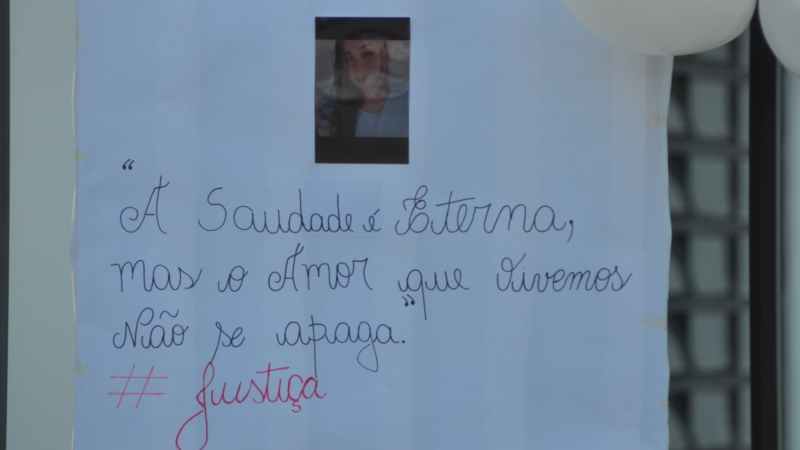 “A Saudade é Eterna,
mas o Amor que vivemos
Não se apaga.”
# Justiça